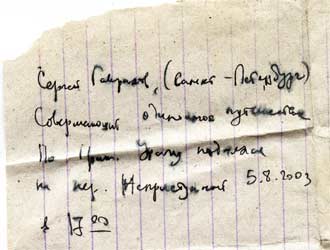 Сергей (Санкт-Петербург)
Совершающий одиночное путешествие
По поднялся
на пер. 5.8.2003
в 17 00